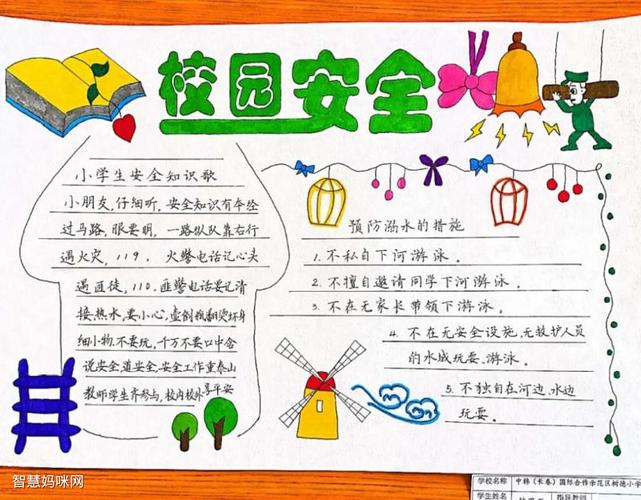 校园安全
小学生安全知识歌
小朋友,仔细听,安全知识有本经
过马路,眼要明,一路纵队靠右行
遇火灾,119,火警电话记心头
遇匪徒,110,匪警电话要记清
接热水,要小心,壶倒瓶翻烫坏身
细小物,不要玩,千万不要口中含
说安全,道安全,安全工作重泰山
教师学生齐参与,校内校外享平安
预防溺水的措施
1.不私自下河游泳.
2.不擅自邀请同学下河游泳.
3.不在无家长带领下游泳.
4.不在无安全设施,无救护人员
的水域玩耍.游泳.
5.不独自在河边.水边
玩耍.
智慧妈咪网
学校名称 中韩(长春)国际合作示范区树德小学
学生姓名
指导教师